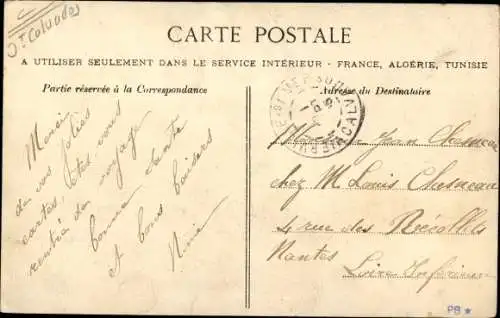 Dt Calvados
CARTE POSTALE
A UTILISER SEULEMENT DANS LE SERVICE INTÉRIEUR - FRANCE, ALGÉRIE, TUNISIE
Partie réservée à la Correspondance
Adresse du Destinataire
Merci
de vos jolies
cartes, êtes vous
rentrée de voyage
bonne santé
et bons baisers
CALVADOS
Jean Chesneau
chez M. Louis Chesneau
4 rue des Récollets
Nantes
Loire Inférieure
PB *